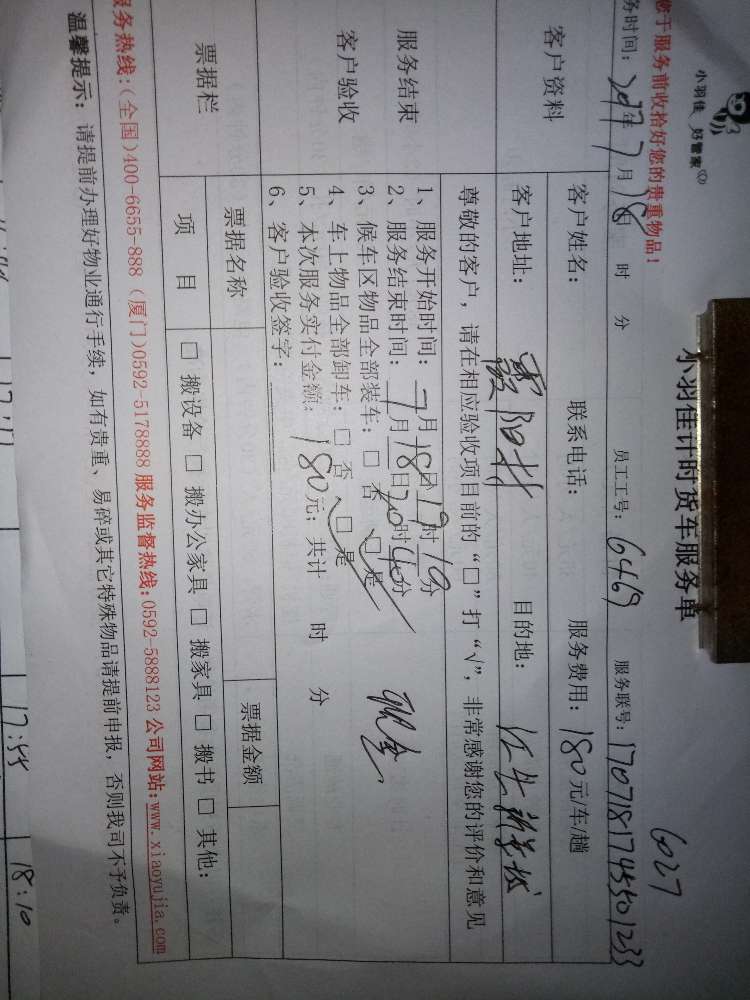 小羽佳 好管家
小羽佳计时货车服务单
6027
您于服务前收拾好您的贵重物品!
务时间: 2017年7月18日 时 分 员工工号: 6469 服务联号: 1707181745501233
客户资料
客户姓名: 联系电话: 服务费用: 180元/车/趟
客户地址: 霞阳村 目的地:
服务结束
客户验收
尊敬的客户, 请在相应验收项目前的“□”打“√”, 非常感谢您的评价和意见
1、服务开始时间: 7月18日19时10分
2、服务结束时间: 7月18日20时40分
3、候车区物品全部装车: □ 否 □ 是
4、车上物品全部卸车: □ 否 □ 是
5、本次服务实付金额: 180元; 共计 时 分
6、客户验收签字:
现金
票据栏
票据名称 票据金额
项 目 □ 搬设备 □ 搬办公家具 □ 搬家具 □ 搬书 □ 其他:
服务热线:(全国)400-6655-888 (厦门)0592-5178888 服务监督热线:0592-5888123 公司网站:www.xiaoyujia.com
温馨提示: 请提前办理好物业通行手续, 如有贵重、易碎或其它特殊物品请提前申报, 否则我司不予负责。
17:55 18:10